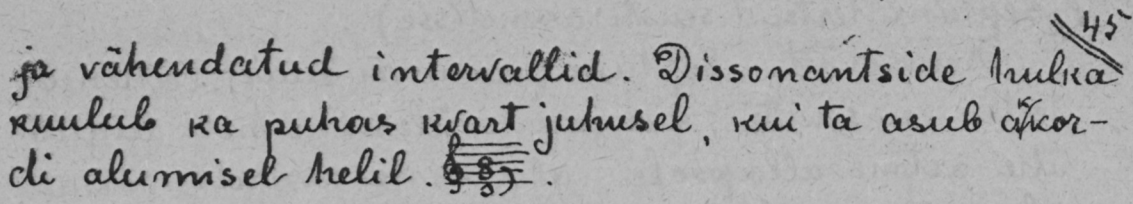 45
ja vähendatud intervallid. Dissonantside hulka
kuulub ka puhas kvart juhusel, kui ta asub akor-
di alumisel helil.